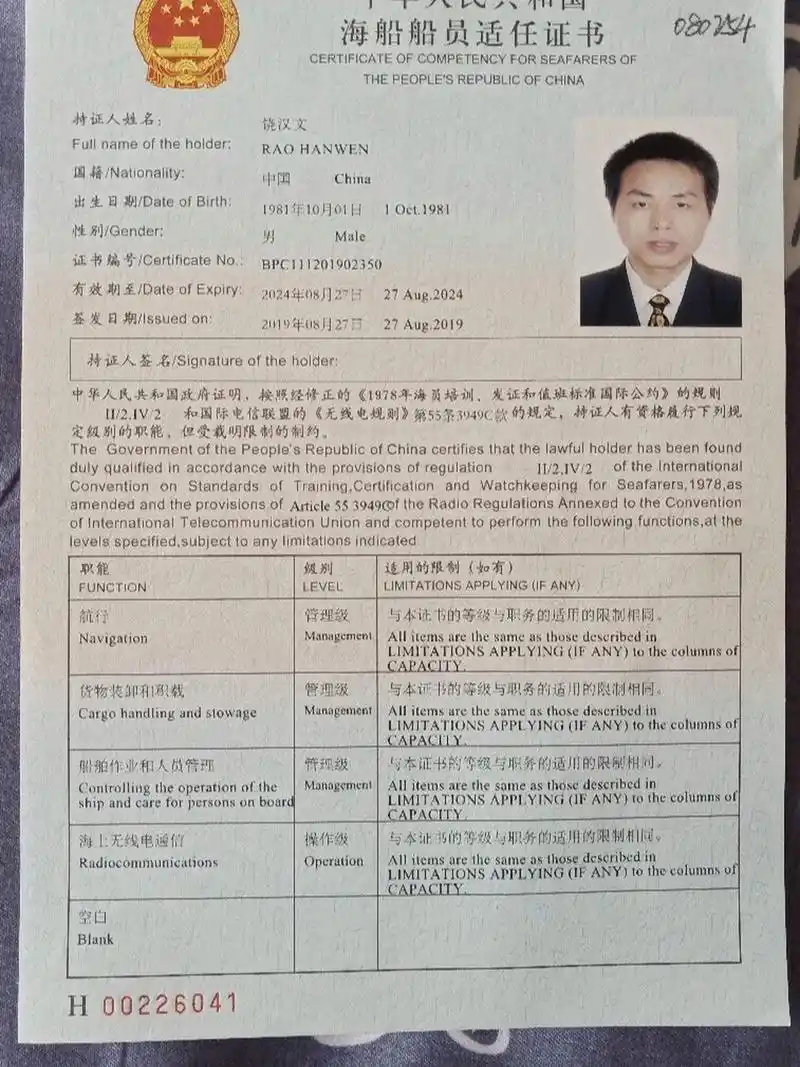 中华人民共和国
海船船员适任证书
080254
CERTIFICATE OF COMPETENCY FOR SEAFARERS OF
THE PEOPLE'S REPUBLIC OF CHINA
持证人姓名: 饶汉文
Full name of the holder: RAO HANWEN
国籍/Nationality: 中国 China
出生日期/Date of Birth: 1981年10月01日 1 Oct.1981
性别/Gender: 男 Male
证书编号/Certificate No.: BPC111201902350
有效期至/Date of Expiry: 2024年08月27日 27 Aug.2024
签发日期/Issued on: 2019年08月27日 27 Aug.2019
持证人签名/Signature of the holder:
中华人民共和国政府证明，按照经修正的《1978年海员培训、发证和值班标准国际公约》的规则
II/2,IV/2 和国际电信联盟的《无线电规则》第55条3949C款的规定，持证人有资格履行下列规
定级别的职能，但受载明限制的制约。
The Government of the People's Republic of China certifies that the lawful holder has been found
duly qualified in accordance with the provisions of regulation II/2,IV/2 of the International
Convention on Standards of Training,Certification and Watchkeeping for Seafarers,1978,as
amended and the provisions of Article 55 3949C of the Radio Regulations Annexed to the Convention
of International Telecommunication Union and competent to perform the following functions,at the
levels specified,subject to any limitations indicated
职能 级别 适用的限制（如有）
FUNCTION LEVEL LIMITATIONS APPLYING (IF ANY)
航行 管理级 与本证书的等级与职务的适用的限制相同。
Navigation Management All items are the same as those described in
LIMITATIONS APPLYING (IF ANY) to the columns of
CAPACITY.
货物装卸和积载 管理级 与本证书的等级与职务的适用的限制相同。
Cargo handling and stowage Management All items are the same as those described in
LIMITATIONS APPLYING (IF ANY) to the columns of
CAPACITY.
船舶作业和人员管理 管理级 与本证书的等级与职务的适用的限制相同。
Controlling the operation of the Management All items are the same as those described in
ship and care for persons on board LIMITATIONS APPLYING (IF ANY) to the columns of
CAPACITY.
海上无线电通信 操作级 与本证书的等级与职务的适用的限制相同。
Radiocommunications Operation All items are the same as those described in
LIMITATIONS APPLYING (IF ANY) to the columns of
CAPACITY.
空白
Blank
H 00226041